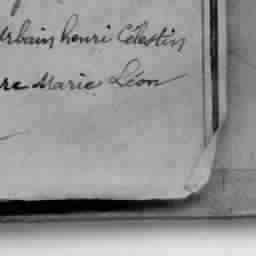 Urbain henri Célestin
re Marie Léon